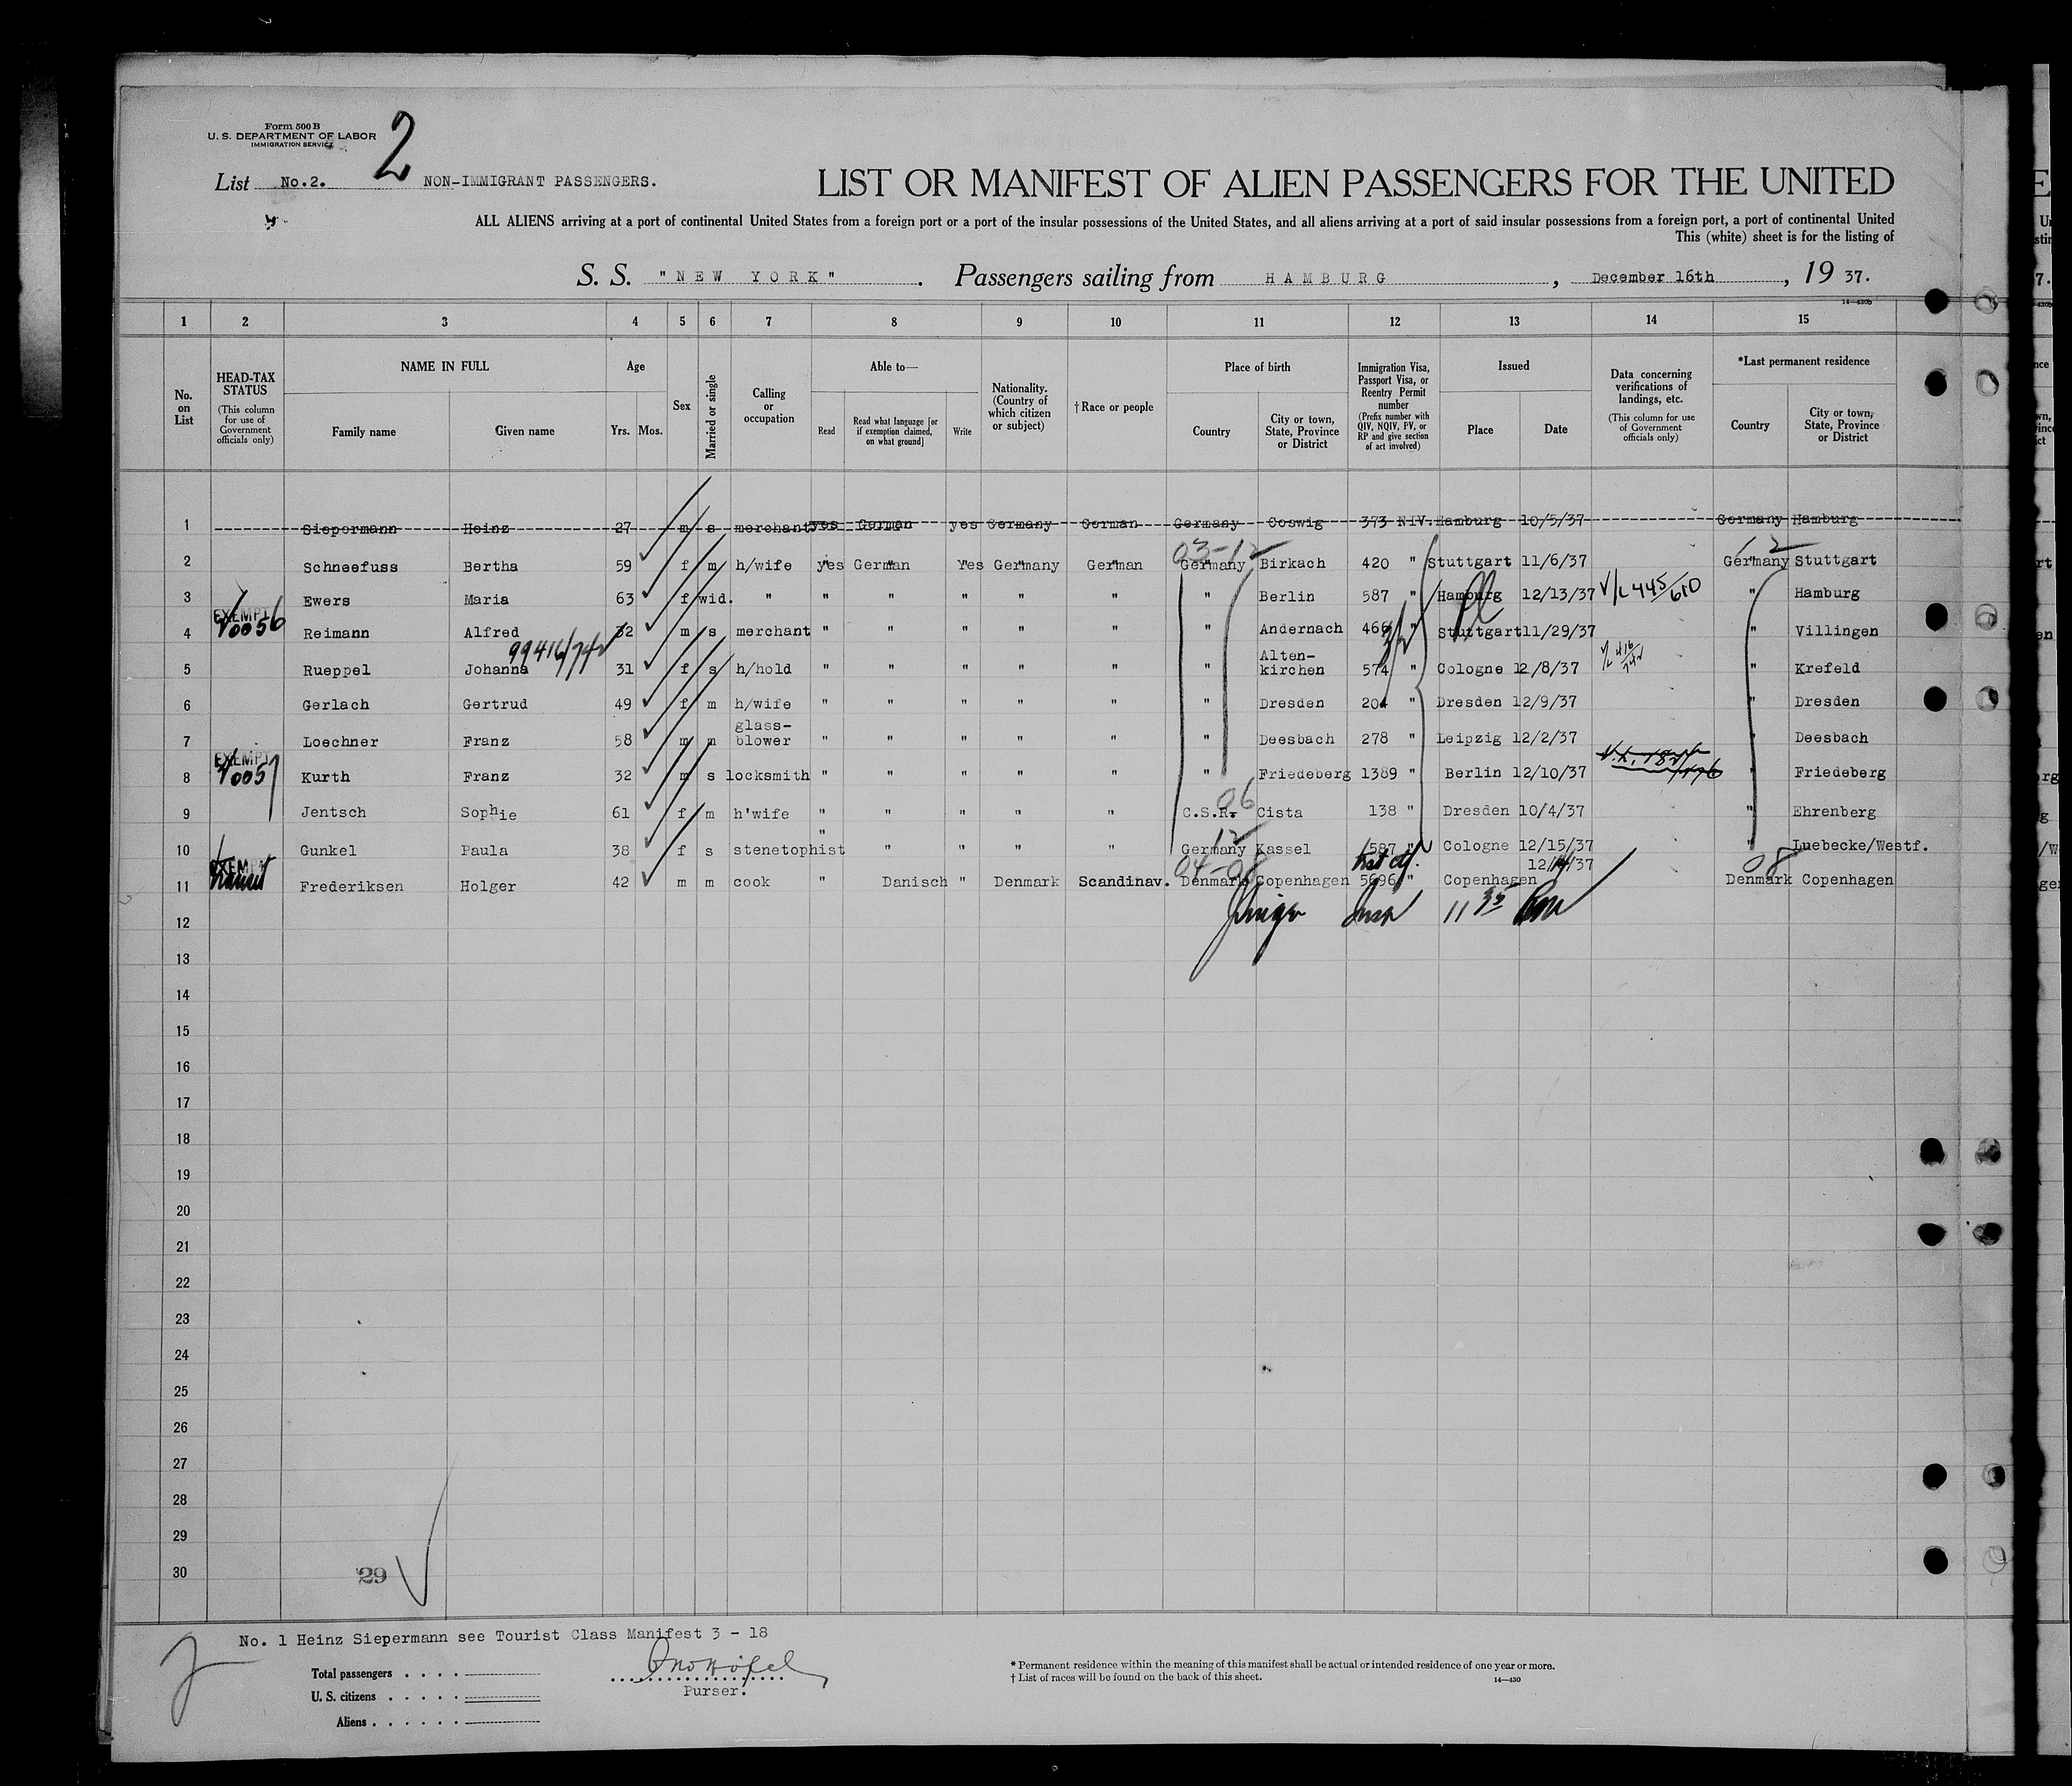 Form 500 B
U. S. DEPARTMENT OF LABOR
IMMIGRATION SERVICE
2
List No.2. NON-IMMIGRANT PASSENGERS.
LIST OR MANIFEST OF ALIEN PASSENGERS FOR THE UNITED
ALL ALIENS arriving at a port of continental United States from a foreign port or a port of the insular possessions of the United States, and all aliens arriving at a port of said insular possessions from a foreign port, a port of continental United
This (white) sheet is for the listing of
S. S. "NEW YORK". Passengers sailing from HAMBURG, December 16th, 19 37.
14-430b
1 2 3 4 5 6 7 8 9 10 11 12 13 14 15
No. on List
HEAD-TAX STATUS (This column for use of Government officials only)
NAME IN FULL Family name Given name
Age Yrs. Mos.
Sex
Married or single
Calling or occupation
Able to— Read Read what language [or if exemption claimed, on what ground] Write
Nationality. (Country of which citizen or subject)
† Race or people
Place of birth Country City or town, State, Province or District
Immigration Visa, Passport Visa, or Reentry Permit number (Prefix number with QIV, NQIV, PV, or RP and give section of act involved)
Issued Place Date
Data concerning verifications of landings, etc. (This column for use of Government officials only)
*Last permanent residence Country City or town, State, Province or District
1 Siepermann Heinz 27 m s merchant yes German yes Germany German Germany Coswig 373 NIV. Hamburg 10/5/37 Germany Hamburg
03-12 12
2 Schneefuss Bertha 59 f m h/wife yes German Yes Germany German Germany Birkach 420 " Stuttgart 11/6/37 Germany Stuttgart
3 Ewers Maria 63 f wid. " " " " " " " Berlin 587 " Hamburg 12/13/37 V/L 445/610 " Hamburg
EXEMPT
V0056
4 Reimann Alfred 32 m s merchant " " " " " " Andernach 466 " Stuttgart 11/29/37 " Villingen
99416/742
5 Rueppel Johanna 31 f s h/hold " " " " " " Alten-kirchen 574 " Cologne 12/8/37 V/L 416/742 " Krefeld
6 Gerlach Gertrud 49 f m h/wife " " " " " " Dresden 204 " Dresden 12/9/37 " Dresden
7 Loechner Franz 58 m m glass-blower " " " " " " Deesbach 278 " Leipzig 12/2/37 " Deesbach
EXEMPT
V0057
8 Kurth Franz 32 m s locksmith " " " " " " Friedeberg 1389 " Berlin 12/10/37 " Friedeberg
06
9 Jentsch Sophie 61 f m h'wife " " " " " C.S.R. Cista 138 " Dresden 10/4/37 " Ehrenberg
12
10 Gunkel Paula 38 f s stenetophist " " " " " Germany Kassel 587 " Cologne 12/15/37 " Luebecke/Westf.
EXEMPT
transit
04-08 08
11 Frederiksen Holger 42 m m cook " Danisch " Denmark Scandinav. Denmark Copenhagen 5696 " Copenhagen 12/14/37 Denmark Copenhagen
12
13
14
15
16
17
18
19
20
21
22
23
24
25
26
27
28
29
30
29
No. 1 Heinz Siepermann see Tourist Class Manifest 3 - 18
Total passengers . . . .
U. S. citizens . . . . .
Aliens . . . . . .
Purser.
* Permanent residence within the meaning of this manifest shall be actual or intended residence of one year or more.
† List of races will be found on the back of this sheet.
14-430